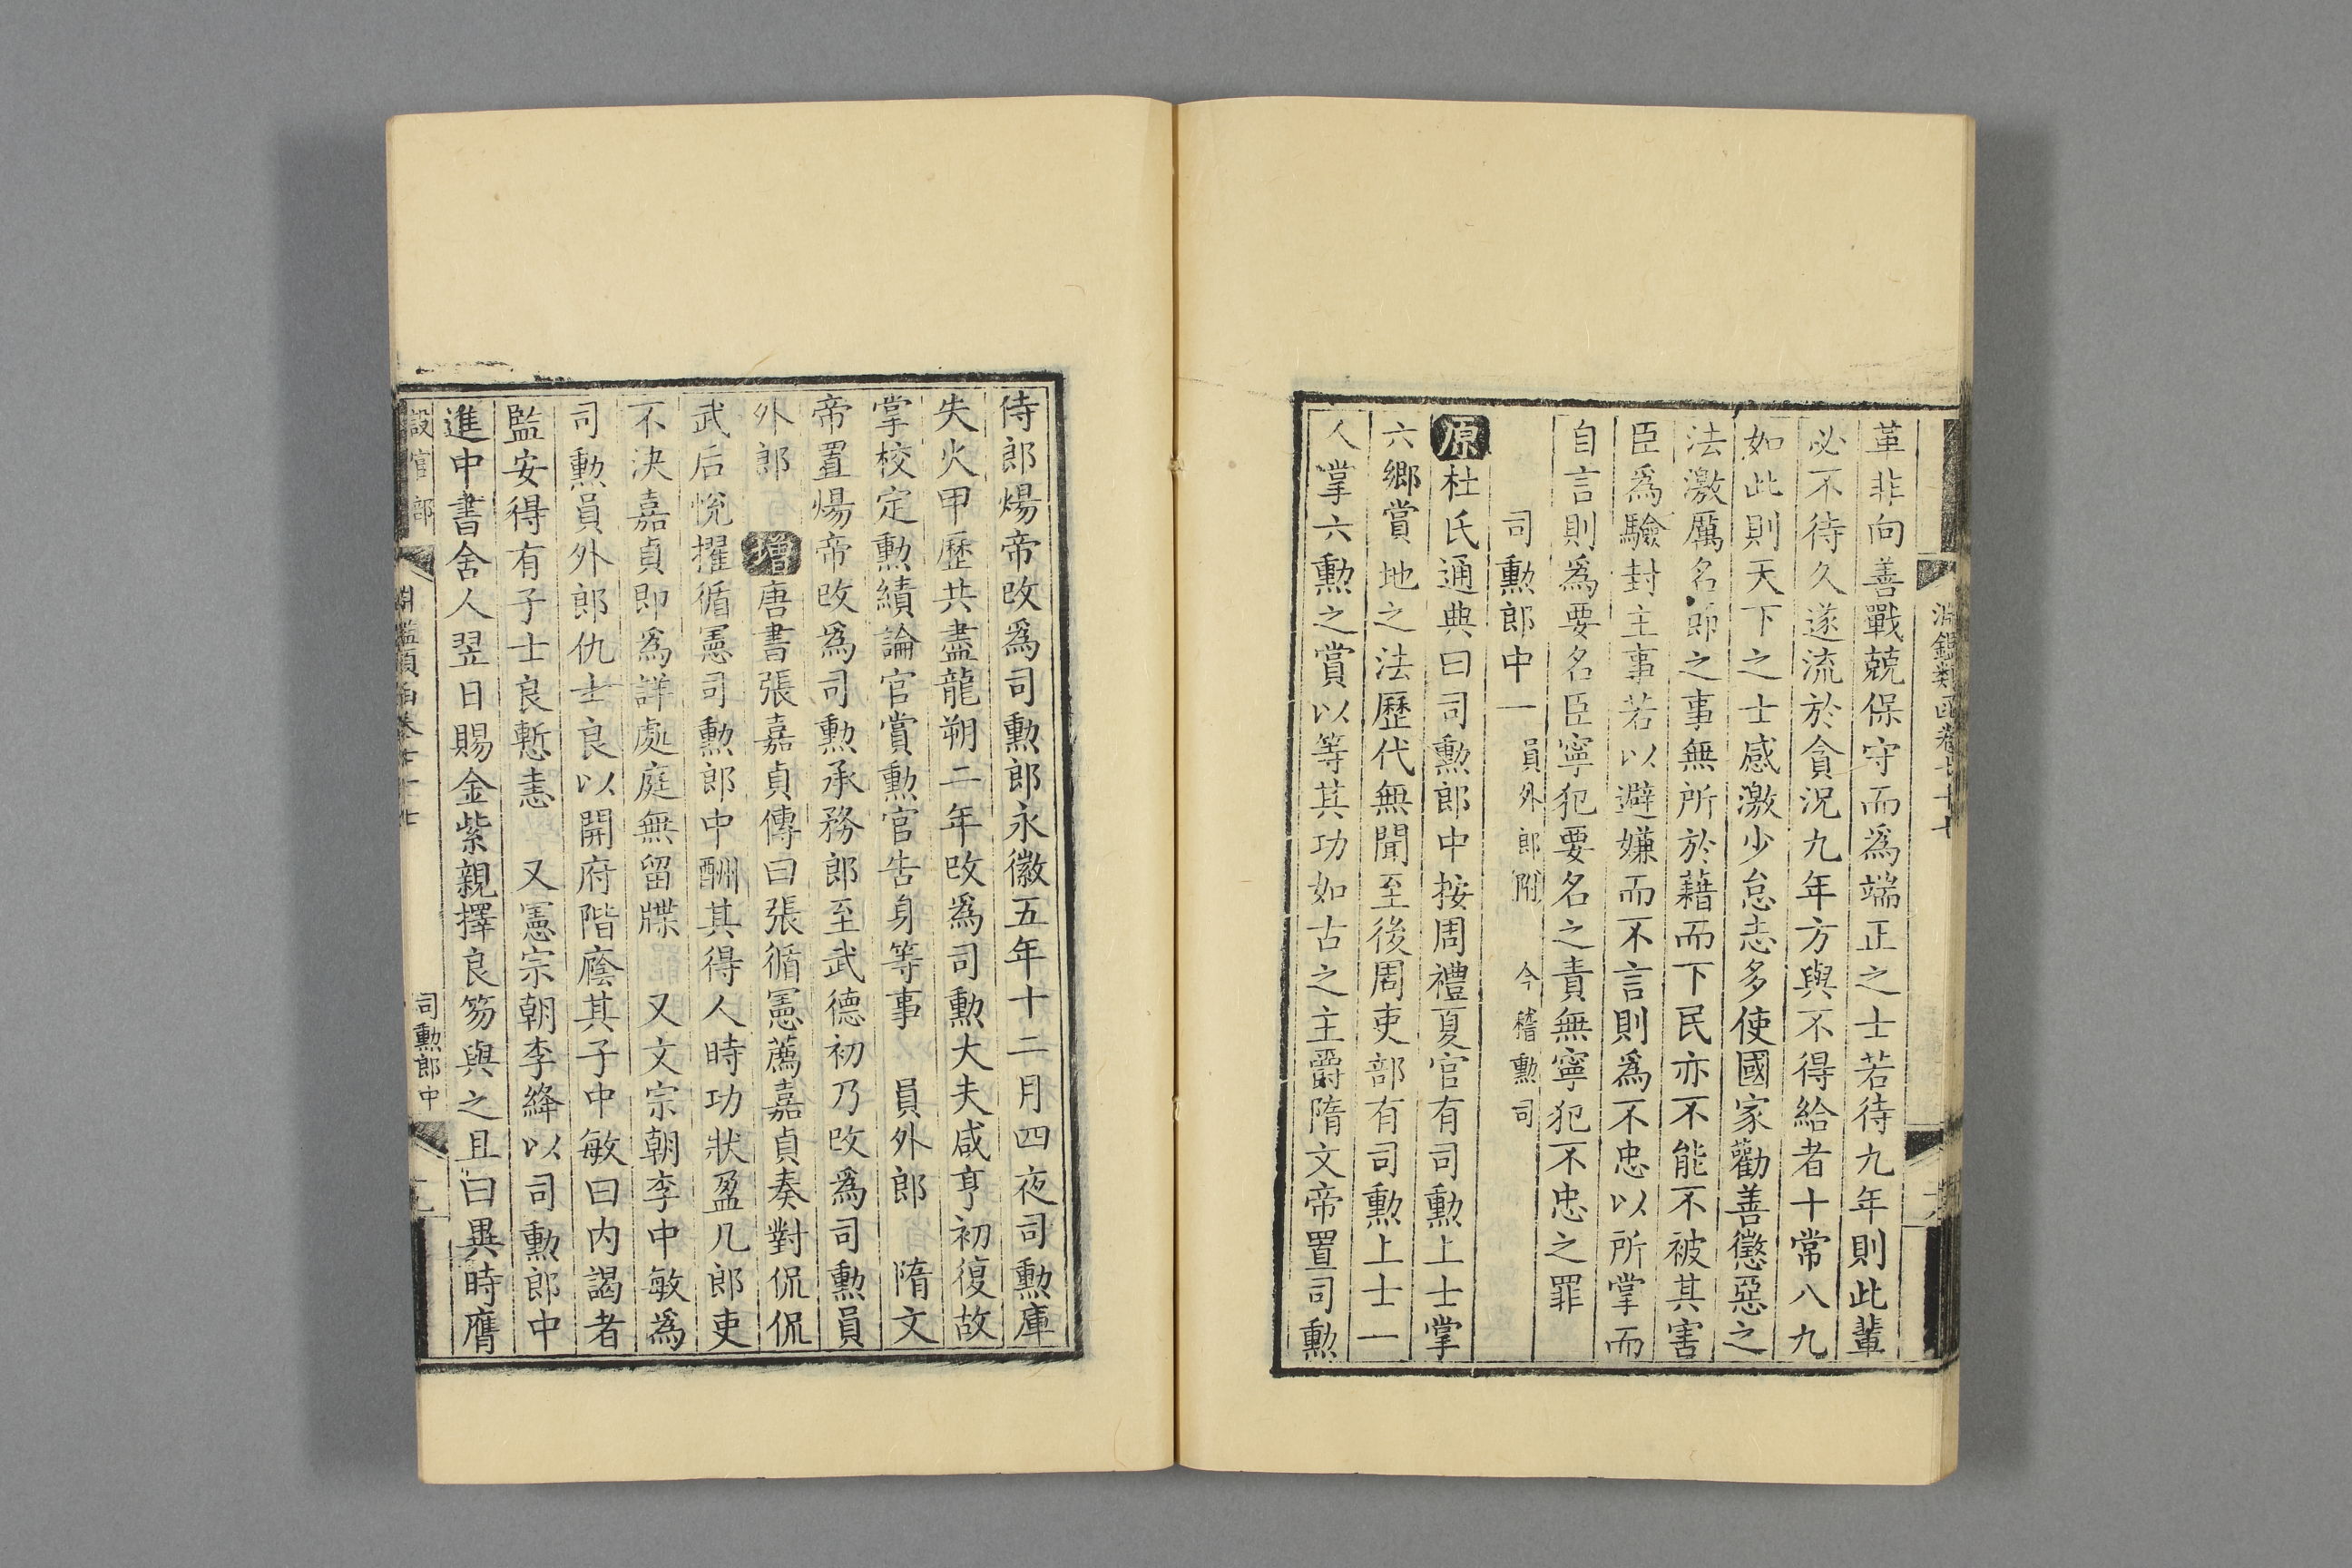 淵鑑類函卷七十七
革非向善戰兢保守而爲端正之士若待九年則此輩
必不待久遂流於貪況九年方與不得給者十常八九
如此則天下之士感激少怠志多使國家勸善懲惡之
法激厲名節之事無所於藉而下民亦不能不被其害
臣爲驗封主事若以避嫌而不言則爲不忠以所掌而
自言則爲要名臣寧犯要名之責無寧犯不忠之罪
司勲郎中一 員外郎附 今稽勲司
原杜氏通典曰司勲郎中按周禮夏官有司勲上士掌
六鄉賞地之法歷代無聞至後周吏部有司勲上士一
人掌六勲之賞以等其功如古之主爵隋文帝置司勲
侍郎煬帝改爲司勲郎永徽五年十二月四夜司勲庫
失火甲歷共盡龍朔二年改爲司勲大夫咸亨初復故
掌校定勲績論官賞勲官告身等事 員外郎 隋文
帝置煬帝改爲司勲承務郎至武德初乃改爲司勲員
外郎 增唐書張嘉貞傳曰張循憲薦嘉貞奏對侃侃
武后悅擢循憲司勲郎中酬其得人時功狀盈几郎吏
不決嘉貞即爲詳處庭無留牒 又文宗朝李中敏爲
司勲員外郎仇士良以開府階廕其子中敏曰内謁者
監安得有子士良慙恚 又憲宗朝李絳以司勲郎中
進中書舍人翌日賜金紫親擇良笏與之且曰異時膺
設官部 淵鑑類函卷七十七 司勲郎中